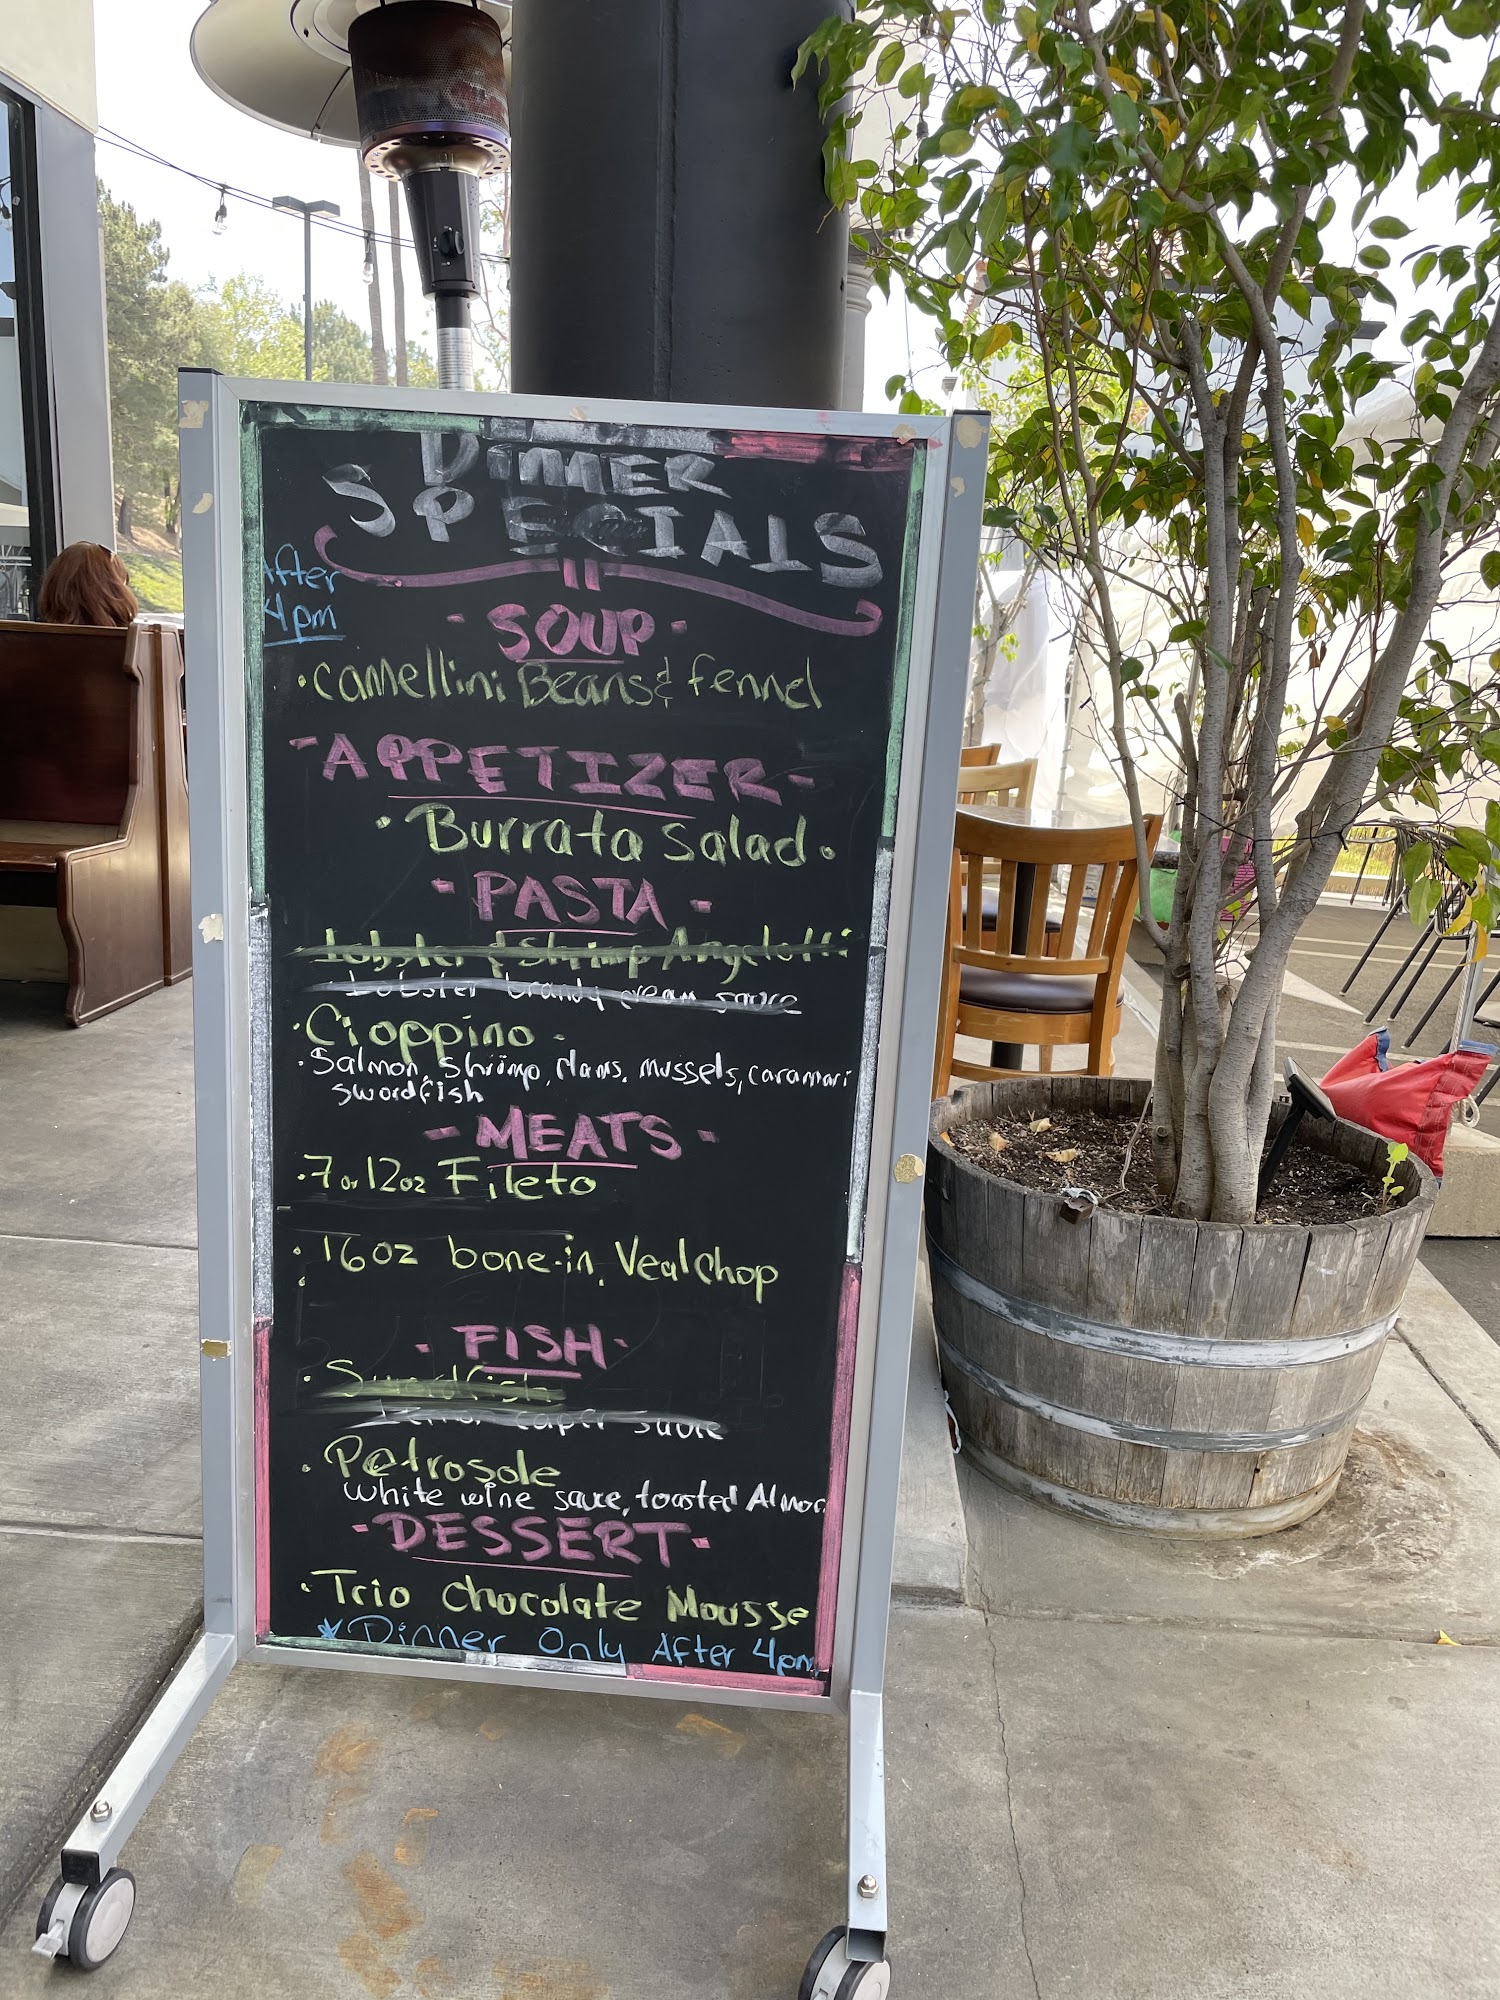 DINNER
SPECIALS
After
4pm
- SOUP -
• Camellini Beans & fennel
- APPETIZER -
• Burrata Salad •
- PASTA -
Lobster & Shrimp Angelotti
Lobster brandy cream sauce
• Cioppino -
• Salmon, shrimp, clams, mussels, caramari
swordfish
- MEATS -
• 7 or 12oz Fileto
• 16oz bone-in, Veal Chop
- FISH -
• Swordfish
Lemon caper sauce
• Petrosole
white wine sauce, toasted Almon
- DESSERT -
• Trio Chocolate Mousse
* Dinner Only After 4pm